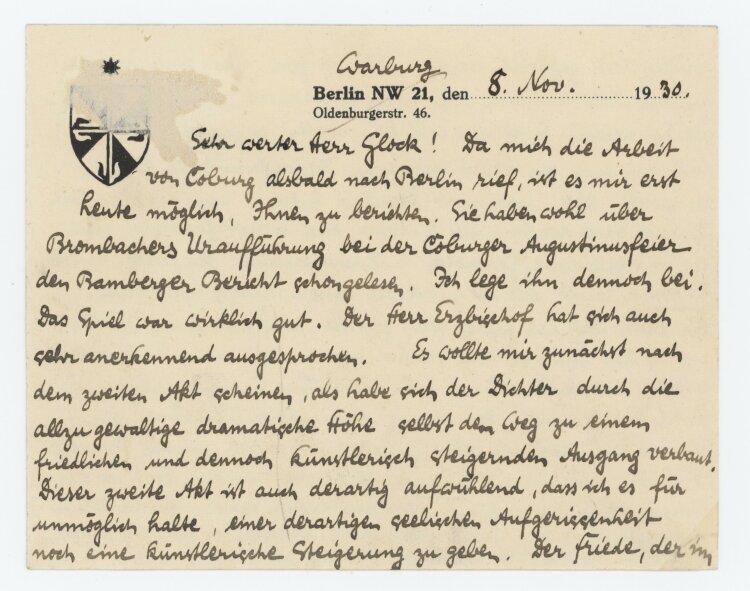 Warburg
Berlin NW 21, den 8. Nov. 1930.
Oldenburgerstr. 46.
Sehr werter Herr Glock! Da mich die Arbeit
von Coburg alsbald nach Berlin rief, ist es mir erst
heute möglich, Ihnen zu berichten. Sie haben wohl über
Brombachers Uraufführung bei der Coburger Augustinusfeier
den Bamberger Bericht schon gelesen. Ich lege ihn dennoch bei.
Das Spiel war wirklich gut. Der Herr Erzbischof hat sich auch
sehr anerkennend ausgesprochen. Es wollte mir zunächst nach
dem zweiten Akt scheinen, als habe sich der Dichter durch die
allzu gewaltige dramatische Höhe selbst den Weg zu einem
friedlichen und dennoch künstlerisch steigernden Ausgang verbaut.
Dieser zweite Akt ist auch derartig aufwühlend, dass ich es für
unmöglich halte, einer derartigen seelischen Aufgerissenheit
noch eine künstlerische Steigerung zu geben. Der Friede, der im